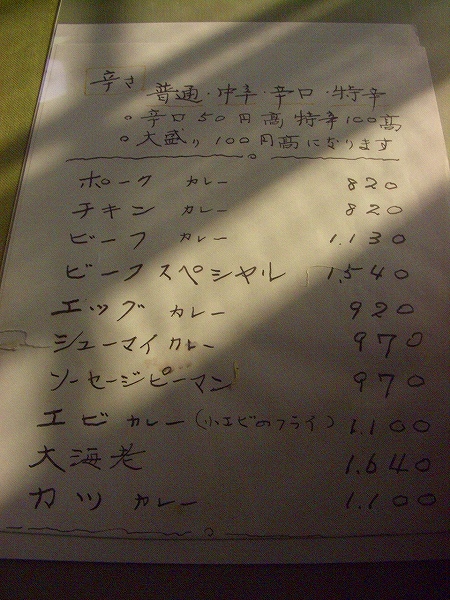 辛さ 普通・中辛・辛口・特辛
○辛口50円高 特辛100高
○大盛り100円高になります
ポーク カレー 820
チキン カレー 820
ビーフ カレー 1.130
ビーフスペシャル 1,540
エッグ カレー 920
シューマイカレー 970
ソーセージピーマン 970
エビ カレー(小エビのフライ) 1.100
大海老 1.640
カツ カレー 1.100